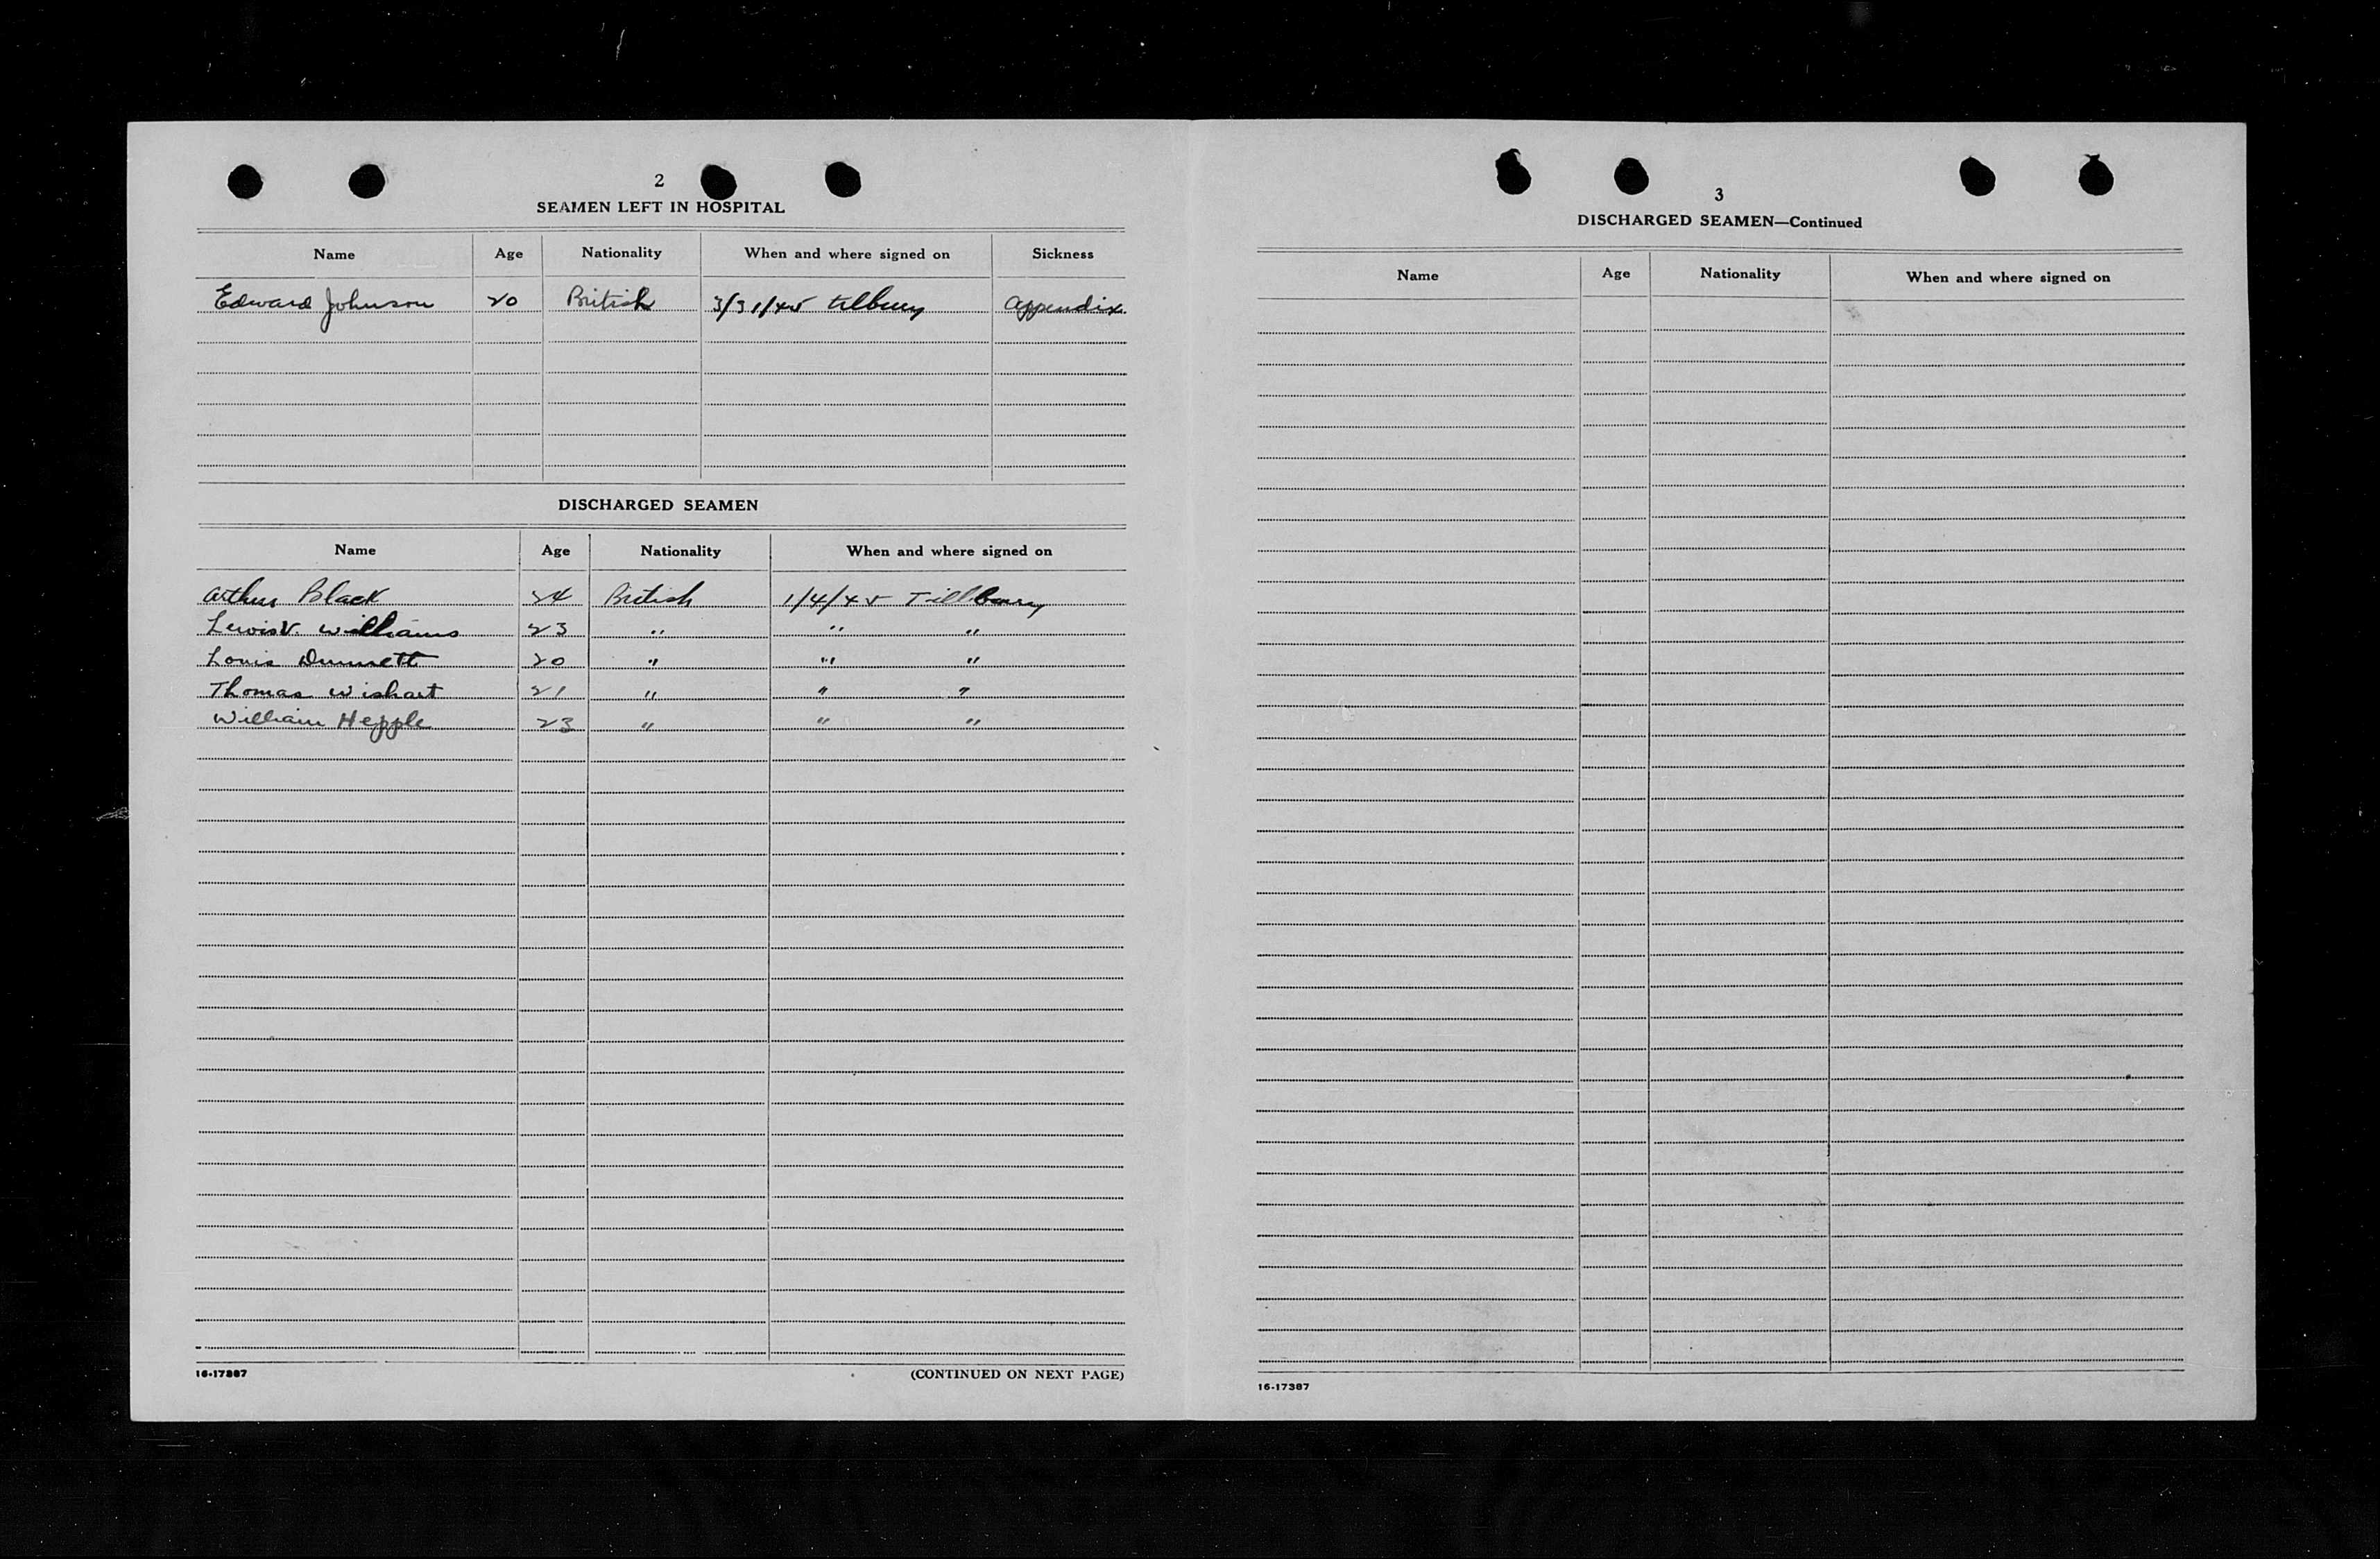 2
SEAMEN LEFT IN HOSPITAL
Name Age Nationality When and where signed on Sickness
Edward Johnson 20 British 3/31/45 tilbury appendix
DISCHARGED SEAMEN
Name Age Nationality When and where signed on
Arthur Black 24 British 1/4/45 Tillbury
Lewis V. Williams 23 " " "
Louis Dunnett 20 " " "
Thomas Wishart 21 " " "
William Hepple 23 " " "
16-17387 (CONTINUED ON NEXT PAGE)
3
DISCHARGED SEAMEN—Continued
Name Age Nationality When and where signed on
16-17387